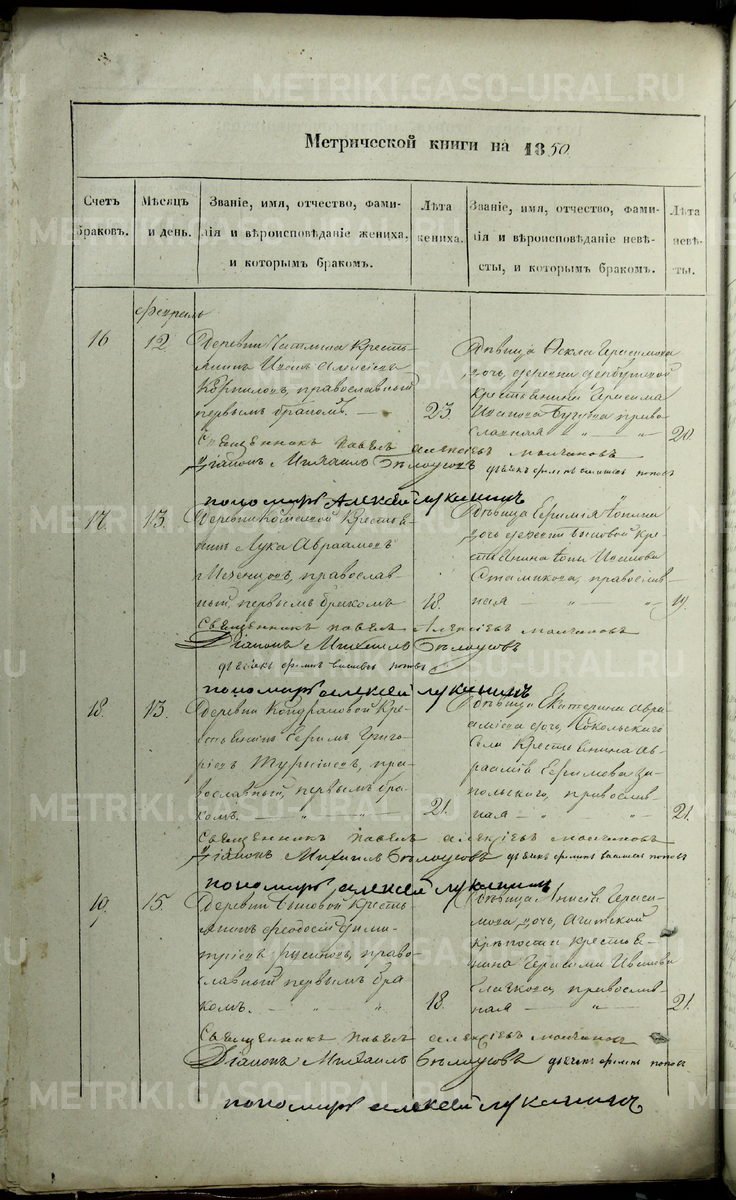 METRIKI.GASO-URAL.RU
Метрической книги на 1850.
Счетъ браковъ.
Мѣсяцъ и день.
Званіе, имя, отчество, фами-
лія и вѣроисповѣданіе жениха,
и которымъ бракомъ.
Лѣта жениха.
Званіе, имя, отчество, фами-
лія и вѣроисповѣданіе невѣ-
сты, и которымъ бракомъ.
Лѣта невѣ-
сты.
Февраль
16
12
Деревни Кресть-
янинъ Иванъ Алексѣевъ
православный
первымъ бракомъ. —
23.
Дѣвица Ѳекла Герасимова
дочь, деревни
крестьянина Герасима
Иванова право-
славная — „ — „
20
Священникъ Павелъ Алексіевъ Молчановъ
Діаконъ Михаилъ Бѣлоусовъ дьячекъ Поповъ
пономарь Алексей Луканинъ
17.
13.
Деревни Крестья-
нинъ Лука Авраамовъ
православ-
ный, первымъ бракомъ
18.
Дѣвица
дочь деревни Бысовой кре-
стьянина Іоны
православ-
ная — „ — „
19.
Священникъ Павелъ Алексіевъ Молчановъ
Діаконъ Михаилъ Бѣлоусовъ
дьячекъ Поповъ
пономарь Алексей Луканинъ
18.
13.
Деревни Кондрашовой Кре-
стьянинъ Ефремъ Григо-
ріевъ пра-
вославный, первымъ бра-
комъ. — „ — „
21.
Дѣвица Екатерина Авра-
амова дочь, Сокольскаго
Села Крестьянина Ав-
раамія Ефремова За-
польскаго, православ-
ная — „ — „
21.
Священникъ Павелъ Алексіевъ Молчановъ
Діаконъ Михаилъ Бѣлоусовъ дьячекъ Поповъ
пономарь Алексей Луканинъ
19.
15.
Деревни Бысовой Кресть-
янинъ Феодосій Дими-
тріевъ Русиновъ, право-
славный первымъ бра-
комъ. — „ — „
18.
Дѣвица Анисія Гераси-
мова дочь, Ачитской
крѣпости крестья-
нина Герасима
православ-
ная — „
21.
Священникъ Павелъ Алексіевъ Молчановъ
Діаконъ Михаилъ Бѣлоусовъ дьячекъ Поповъ
пономарь Алексей Луканинъ